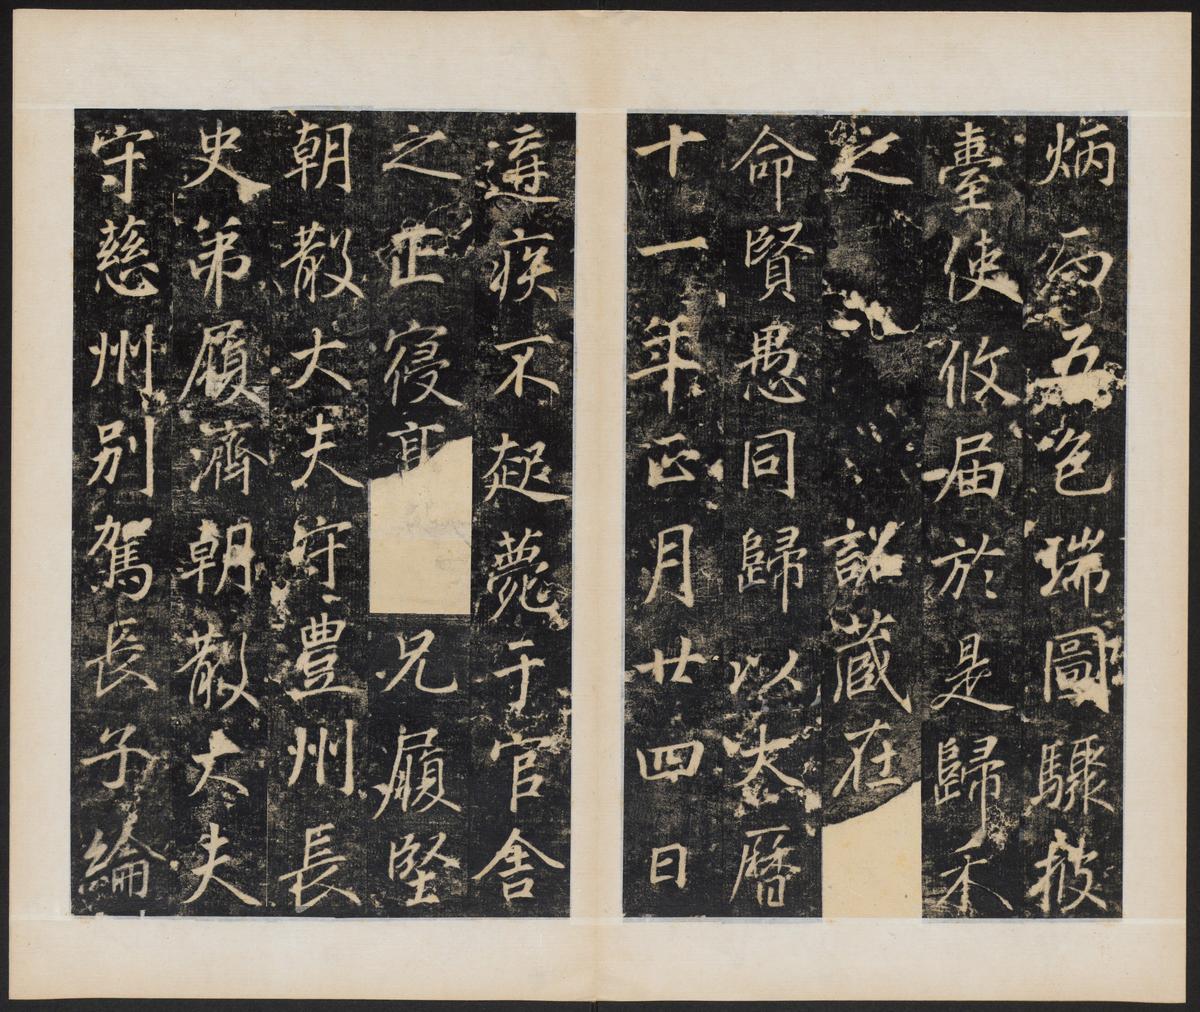 炳而五色瑞圖驟披
臺使攸届於是歸禾
之詔藏在
命賢愚同歸以大曆
十一年正月廿四日
遘疾不起薨于官舎
之正寝享兄履堅
朝散大夫守豊州長
史弟履濟朝散大夫
守慈州别駕長子綸